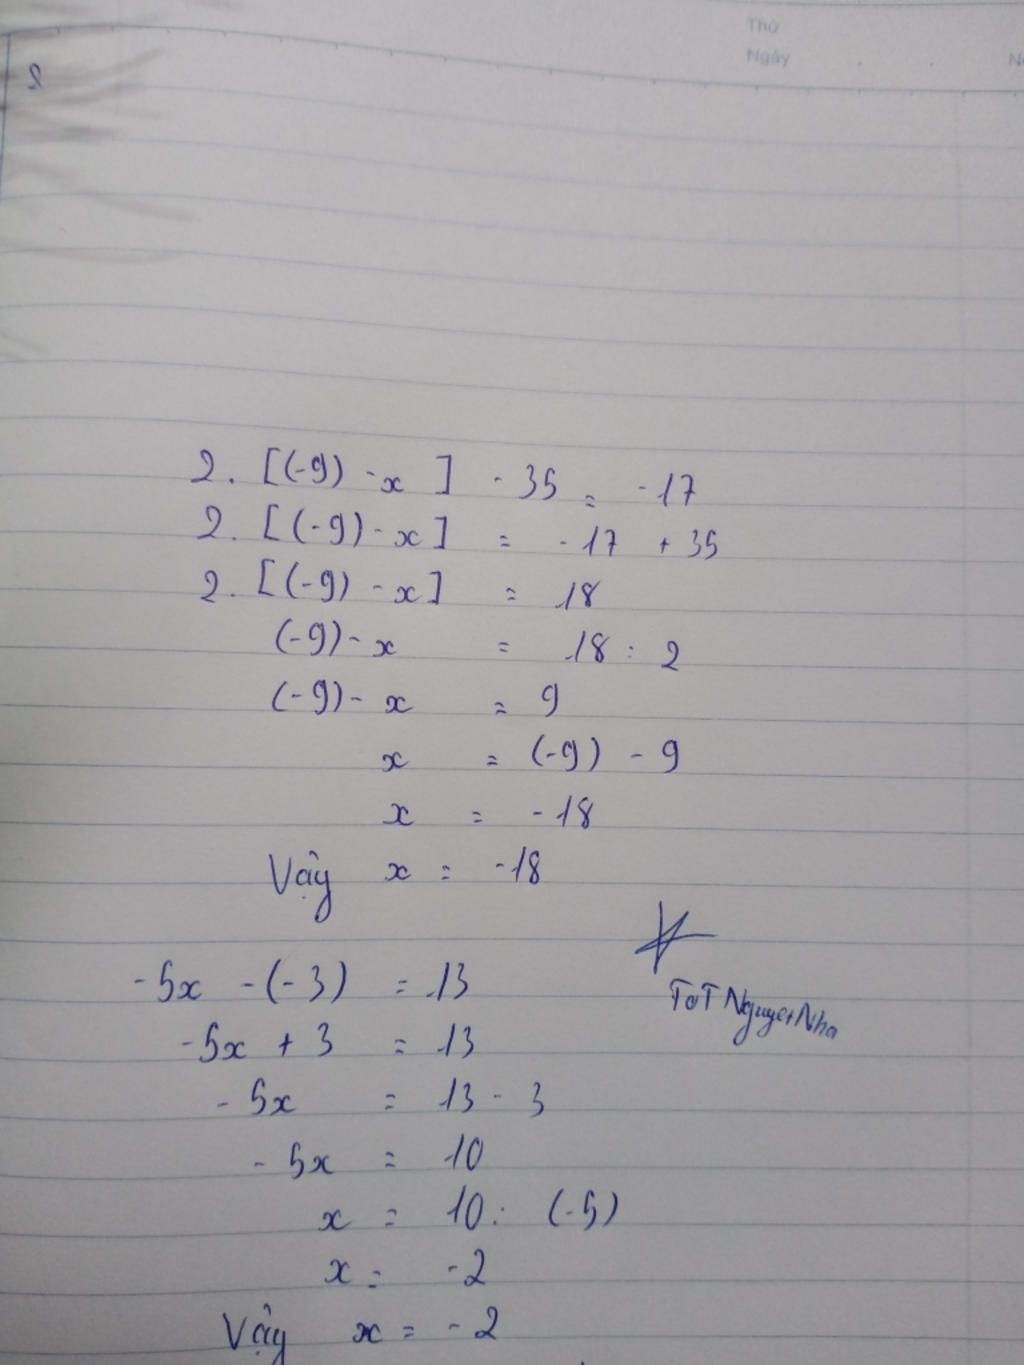 Thứ
Ngày
2. [(-9) - x] - 35 = -17
2. [(-9) - x] = -17 + 35
2. [(-9) - x] = 18
(-9) - x = 18 : 2
(-9) - x = 9
x = (-9) - 9
x = -18
Vậy x = -18
-5x - (-3) = 13
-5x + 3 = 13
-5x = 13 - 3
-5x = 10
x = 10 : (-5)
x = -2
Vậy x = -2